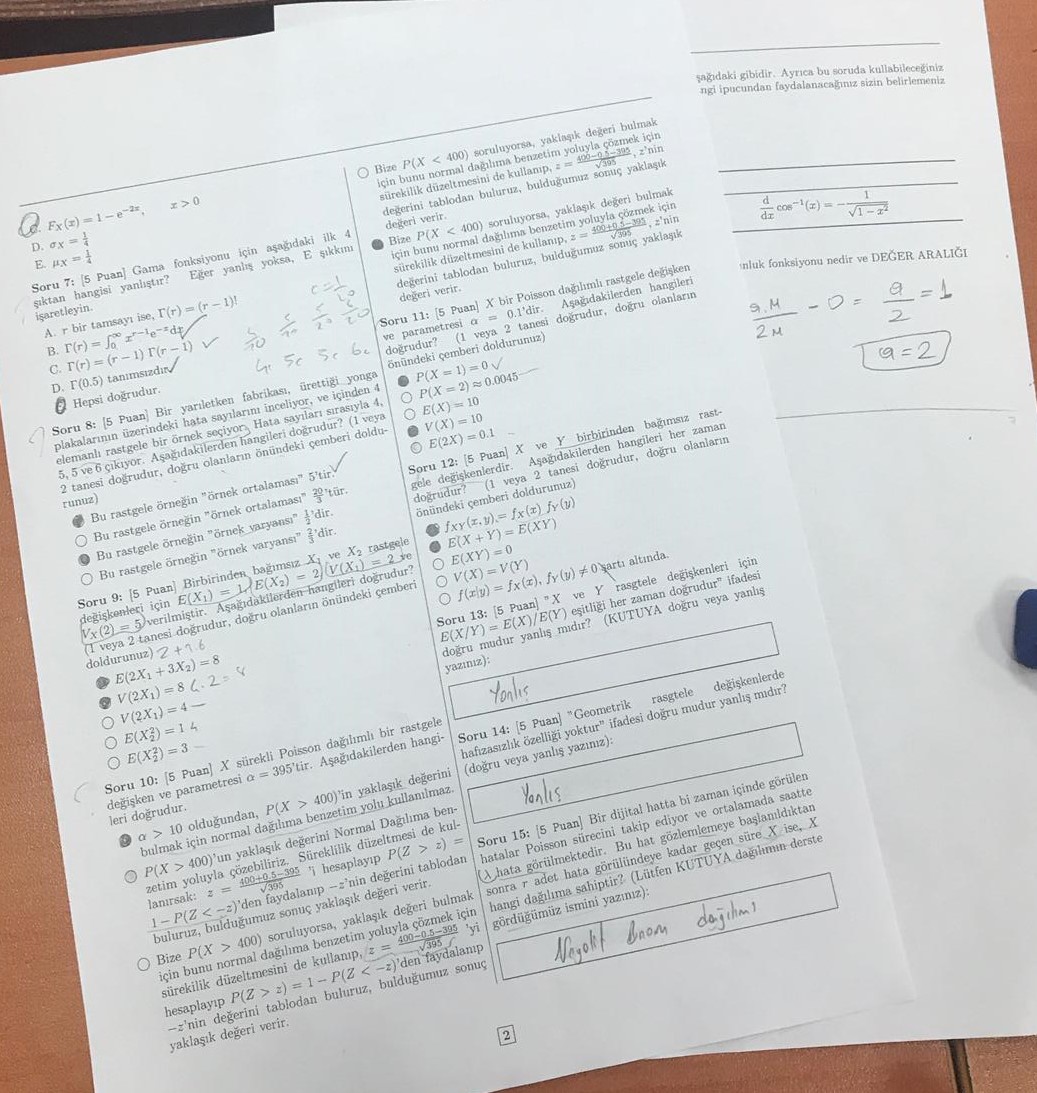 C. Fx(x) = 1 − e^{−2x}, x > 0
D. σx = 1/4
E. μx = 1/4
Soru 7: [5 Puan] Gama fonksiyonu için aşağıdaki ilk 4
şıktan hangisi yanlıştır? Eğer yanlış yoksa, E şıkkını
işaretleyin.
A. r bir tamsayı ise, Γ(r) = (r − 1)!
B. Γ(r) = ∫₀^∞ x^{r−1}e^{−x}dx
C. Γ(r) = (r − 1) Γ(r − 1)
D. Γ(0.5) tanımsızdır
E Hepsi doğrudur.
Soru 8: [5 Puan] Bir yarıiletken fabrikası, ürettiği yonga
plakalarının üzerindeki hata sayılarını inceliyor, ve içinden 4
elemanlı rastgele bir örnek seçiyor. Hata sayıları sırasıyla 4,
5, 5 ve 6 çıkıyor. Aşağıdakilerden hangileri doğrudur? (1 veya
2 tanesi doğrudur, doğru olanların önündeki çemberi doldu-
runuz)
Bu rastgele örneğin "örnek ortalaması" 5'tir.
Bu rastgele örneğin "örnek ortalaması" 20/3'tür.
Bu rastgele örneğin "örnek varyansı" 1/2'dir.
Bu rastgele örneğin "örnek varyansı" 2/3'dir.
Soru 9: [5 Puan] Birbirinden bağımsız X₁ ve X₂ rastgele
değişkenleri için E(X₁) = 1, E(X₂) = 2, V(X₁) = 2 ve
Vx(2) = 5 verilmiştir. Aşağıdakilerden hangileri doğrudur?
(1 veya 2 tanesi doğrudur, doğru olanların önündeki çemberi
doldurunuz)
E(2X₁ + 3X₂) = 8
V(2X₁) = 8 4.2=8
V(2X₁) = 4
E(X₂²) = 1
E(X₂²) = 3
Soru 10: [5 Puan] X sürekli Poisson dağılımlı bir rastgele
değişken ve parametresi α = 395'tir. Aşağıdakilerden hangi-
leri doğrudur.
α > 10 olduğundan, P(X > 400)'in yaklaşık değerini
bulmak için normal dağılıma benzetim yolu kullanılmaz.
P(X > 400)'un yaklaşık değerini Normal Dağılıma ben-
zetim yoluyla çözebiliriz. Süreklilik düzeltmesi de kul-
lanırsak: z = (400+0.5−395)/√395 'i hesaplayıp P(Z > z) =
1 − P(Z < −z)'den faydalanıp −z'nin değerini tablodan
buluruz, bulduğumuz sonuç yaklaşık değeri verir.
Bize P(X > 400) soruluyorsa, yaklaşık değeri bulmak
için bunu normal dağılıma benzetim yoluyla çözmek için
sürekilik düzeltmesini de kullanıp, z = (400−0.5−395)/√395 'yi
hesaplayıp P(Z > z) = 1 − P(Z < −z)'den faydalanıp
−z'nin değerini tablodan buluruz, bulduğumuz sonuç
yaklaşık değeri verir.
Bize P(X < 400) soruluyorsa, yaklaşık değeri bulmak
için bunu normal dağılıma benzetim yoluyla çözmek için
sürekilik düzeltmesini de kullanıp, z = (400−0.5−395)/√395, z'nin
değerini tablodan buluruz, bulduğumuz sonuç yaklaşık
değeri verir.
Bize P(X < 400) soruluyorsa, yaklaşık değeri bulmak
için bunu normal dağılıma benzetim yoluyla çözmek için
sürekilik düzeltmesini de kullanıp, z = (400+0.5−395)/√395, z'nin
değerini tablodan buluruz, bulduğumuz sonuç yaklaşık
değeri verir.
Soru 11: [5 Puan] X bir Poisson dağılımlı rastgele değişken
ve parametresi α = 0.1'dir. Aşağıdakilerden hangileri
doğrudur? (1 veya 2 tanesi doğrudur, doğru olanların
önündeki çemberi doldurunuz)
P(X = 1) = 0
P(X = 2) ≈ 0.0045
E(X) = 10
V(X) = 10
E(2X) = 0.1
Soru 12: [5 Puan] X ve Y birbirinden bağımsız rast-
gele değişkenlerdir. Aşağıdakilerden hangileri her zaman
doğrudur? (1 veya 2 tanesi doğrudur, doğru olanların
önündeki çemberi doldurunuz)
fXY(x, y) = fX(x) fY(y)
E(X + Y) = E(XY)
E(XY) = 0
V(X) = V(Y)
f(x|y) = fX(x), fY(y) ≠ 0 şartı altında.
Soru 13: [5 Puan] "X ve Y rasgtele değişkenleri için
E(X/Y) = E(X)/E(Y) eşitliği her zaman doğrudur" ifadesi
doğru mudur yanlış mıdır? (KUTUYA doğru veya yanlış
yazınız):
Yanlış
Soru 14: [5 Puan] "Geometrik rasgtele değişkenlerde
hafızasızlık özelliği yoktur" ifadesi doğru mudur yanlış mıdır?
(doğru veya yanlış yazınız):
Yanlış
Soru 15: [5 Puan] Bir dijital hatta bi zaman içinde görülen
hatalar Poisson sürecini takip ediyor ve ortalamada saatte
λ hata görülmektedir. Bu hat gözlemlemeye başlanıldıktan
sonra r adet hata görülündeye kadar geçen süre X ise, X
hangi dağılıma sahiptir? (Lütfen KUTUYA dağılımın derste
gördüğümüz ismini yazınız):
Negatif Binom dağılımı
2
şağıdaki gibidir. Ayrıca bu soruda kullabileceğiniz
ngi ipucundan faydalanacağınız sizin belirlemeniz
d/dx cos⁻¹(x) = −1/√(1 − x²)
nluk fonksiyonu nedir ve DEĞER ARALIĞI
a.M/2M − 0 = a/2 = 1
a = 2